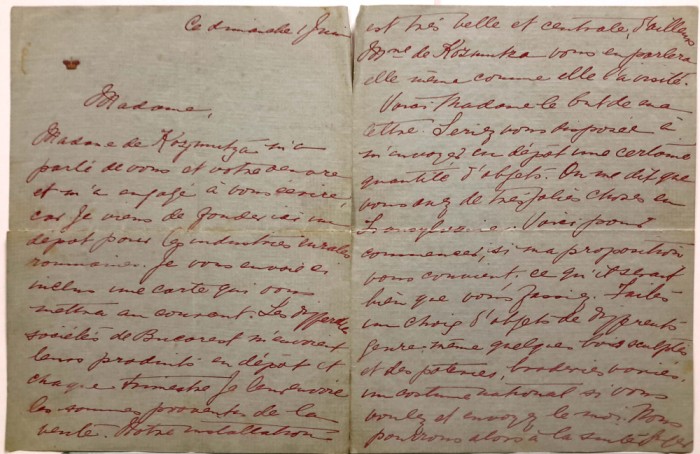 Ce dimanche 1 Juin
Madame,
Madame de Kozmutza m'a
parlé de vous et votre oeuvre
et m'a engagé à vous écrire,
car je viens de fonder ici un
dépot pour les industries rurales
roumaines. Je vous envoie ci
inclus une carte qui vous
mettra au courant. Les différentes
sociétés de Bucarest m'envoient
leurs produits en dépot et
chaque trimestre je leur envoie
les sommes provenantes de la
vente. Notre installation
est très belle et centrale, d'ailleurs
Mme de Kozmutza vous en parlera
elle même comme elle l'a visité.
Voici Madame le but de ma
lettre. Seriez vous disposée à
m'envoyer en dépôt une certaine
quantité d'objets. On me dit que
vous avez de très jolies choses en
Transylvanie. Voici pour
commencer, si ma proposition
vous convient, ce qu'il serait
bien que vous fassiez. Faites
un choix d'objets de différents
genre: même quelques bois sculptés
et des poteries, broderies variées,
un costume national si vous
voulez et envoyez le moi. Nous
pourrons alors à la suite